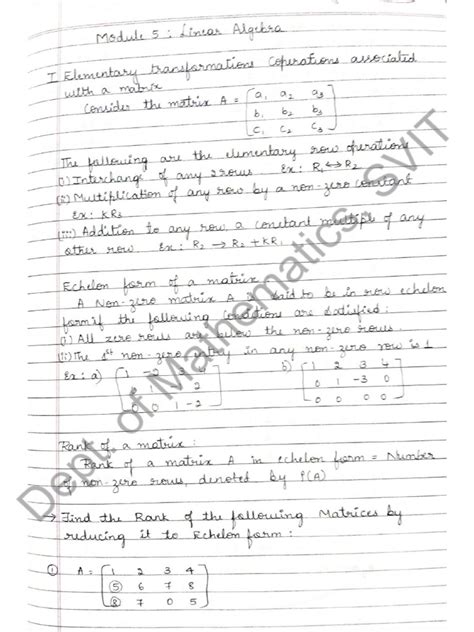 Module 5 : Linear Algebra
I Elementary transformations (operations associated
with a matrix
Consider the matrix A = [a₁ a₂ a₃
b₁ b₂ b₃
c₁ c₂ c₃]
The following are the elementary row operations
(i) Interchange of any 2 rows. Ex: R₁ ↔ R₂
(ii) Multiplication of any row by a non-zero constant
Ex: kR₂
(iii) Addition to any row a constant multiple of any
other row. Ex: R₂ → R₂ + kR₁
Echelon form of a matrix
A Non-zero matrix A is said to be in row echelon
form if the following conditions are satisfied :
(i) All zero rows are below the non-zero rows.
(ii) The 1st non-zero entry in any non-zero row is 1
Ex: a) [1 -2 3
1 2
0 0 1 -2]
b) [1 2 3 4
0 1 -3 0
0 0 0 0]
Rank of a matrix :
Rank of a matrix A in echelon form = Number
of non-zero rows, denoted by ρ(A)
→ Find the Rank of the following Matrices by
reducing it to Echelon form :
① A = [1 2 3 4
⑤ 6 7 8
⑧ 7 0 5]
Dept. of Mathematics, SVIT